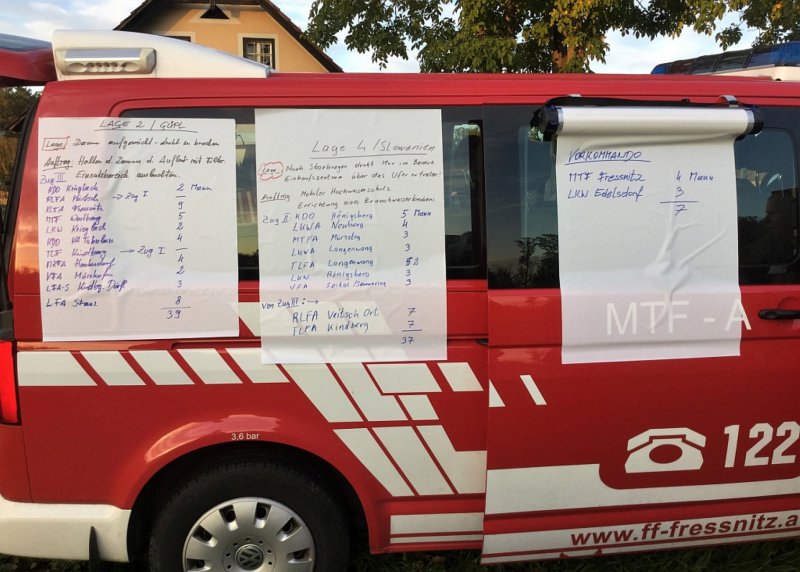 LAGE 2 / GÖPL
Lage: Damm aufgeweicht - droht zu brechen
Auftrag: Halten d. Dammes d. Auflast mit Filter
Einsatzbereich ausleuchten.
Zug III
KDO Krieglach 2 Mann
RLFA Veitsch → Zug I 7
RLFA Fressnitz 9
MTF Wartberg 5
LKW Krieglach 2
KDO 4
TLF Kindberg → Zug I
4
VFA Mürzhofen 2
LFA-S Kindbg. Dorf 3
LFA Stanz 8
39
Lage 4 / Slowenien
Lage: Nach Starkregen droht Mur im Bereich
Einkaufszentrum über das Ufer zu treten!
Auftrag: Mobiler Hochwasserschutz
Errichtung eines
Zug II: KDO Königsberg 5 Mann
LKWA Neuberg 4
MTFA Mürzsteg 3
LKWA Langenwang 3
TLFA Langenwang
LKW Hönigsberg 3
VFA Spital/Semmering 3
von Zug III: →
RLFA Veitsch Ort 7
TLFA Kindberg 7
37
VORKOMMANDO
MTF Fressnitz 4 Mann
LKW Edelsdorf 3
7
MTF - A
122
3,6 bar
www.ff-fressnitz.a